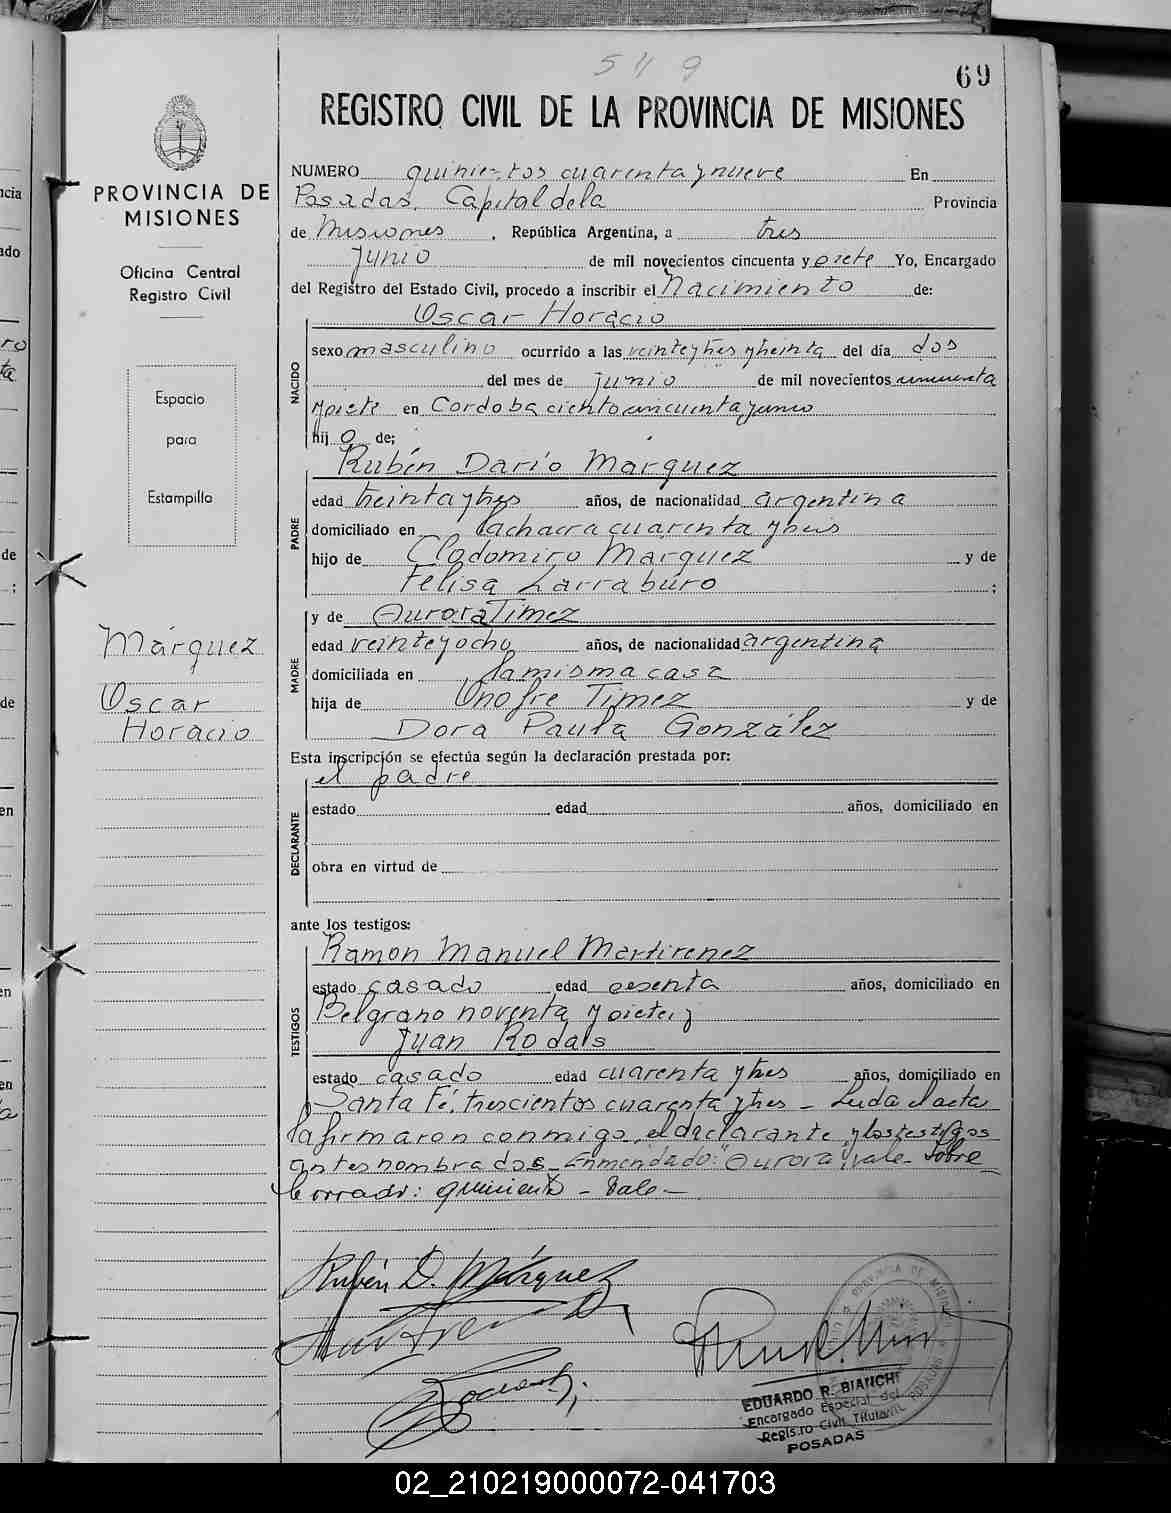 549
69
REGISTRO CIVIL DE LA PROVINCIA DE MISIONES
PROVINCIA DE
MISIONES
Oficina Central
Registro Civil
Espacio
para
Estampilla
Márquez
Oscar
Horacio
NUMERO quinientos cuarenta y nueve En
Posadas, Capital de la Provincia
de Misiones, República Argentina, a tres
Junio de mil novecientos cincuenta y siete Yo, Encargado
del Registro del Estado Civil, procedo a inscribir el Nacimiento de:
Oscar Horacio
NACIDO
sexo masculino ocurrido a las veinte y tres y treinta del día dos
del mes de junio de mil novecientos cincuenta
y siete en Cordoba ciento cincuenta y uno
hijo de;
Rubén Darío Marquez
PADRE
edad treinta y tres años, de nacionalidad argentina
domiciliado en la chacra cuarenta y seis
hijo de Clodomiro Marquez y de
Felisa Larraburo ;
y de Aurora Timez
MADRE
edad veinte y ocho años, de nacionalidad argentina
domiciliada en la misma casa
hija de Onofre Timez y de
Dora Paula González
Esta inscripción se efectúa según la declaración prestada por:
el padre
DECLARANTE
estado , edad años, domiciliado en
obra en virtud de
ante los testigos:
Ramon Manuel Martirenez
TESTIGOS
estado casado , edad sesenta años, domiciliado en
Belgrano noventa y siete y
Juan Rodals
estado casado edad cuarenta y tres años, domiciliado en
Santa Fé, trescientos cuarenta y tres - Leida el acta
la firmaron conmigo, el declarante y los testigos
antes nombrados - Enmendado: "Aurora", vale - Sobre
borrado: quinientos - Vale -
Rubén D. Márquez
EDUARDO R. BIANCHI
Encargado Especial del
Registro Civil Titular
POSADAS
PROVINCIA DE MISIONES
02_210219000072-041703